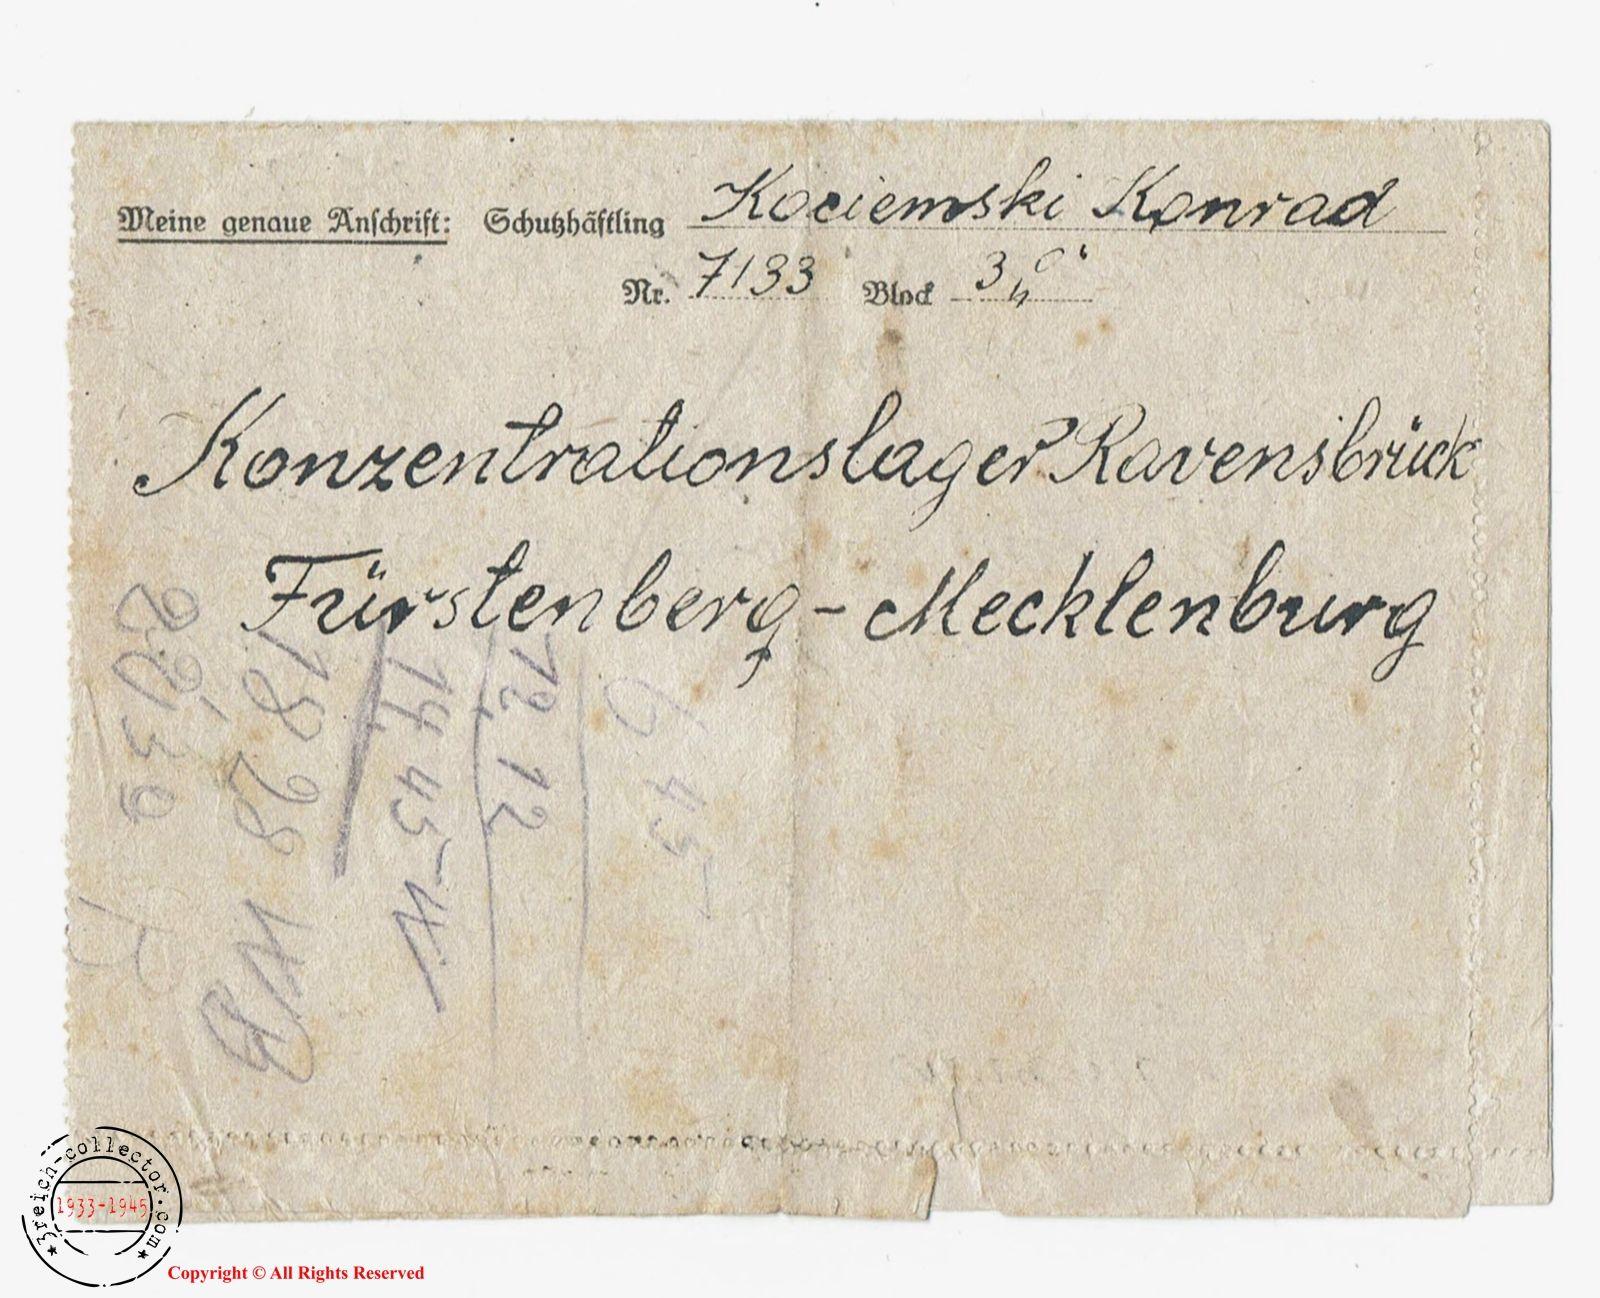 Meine genaue Anschrift: Schutzhäftling Kociemski Konrad
Nr. 7133 Block 3
Konzentrationslager Ravensbrück
Fürstenberg - Mecklenburg
12 12
14 45 W
18 28
39
6 45
3reich-collector.com
1933-1945
Copyright © All Rights Reserved